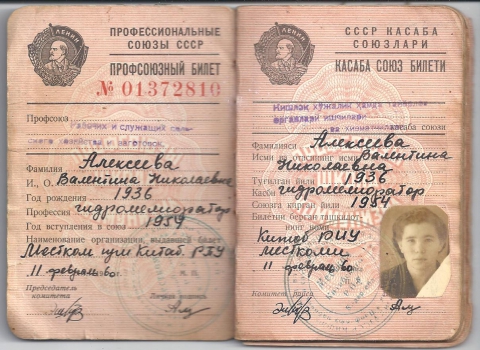 ЛЕНИН
ПРОФЕССИОНАЛЬНЫЕ
СОЮЗЫ СССР
ПРОФСОЮЗНЫЙ БИЛЕТ
№ 01372810
Профсоюз
Рабочих и служащих сель-
ского хозяйства и заготовок.
Фамилия Алексеева
И., О. Валентина Николаевна
Год рождения 1936
Профессия гидромелиоратор
Год вступления в союз 1954
Наименование организации, выдавшей билет
Местком при Китаб. РИУ
11 февраль
Председатель
комитета
Личная подпись
ЛЕНИН
СССР КАСАБА
СОЮЗЛАРИ
КАСАБА СОЮЗ БИЛЕТИ
Қишлоқ хўжалик ҳамда
органлари ишчилари
ва касаба союзи
Фамилияси Алексеева
Исми ва отасининг исми Валентина
Николаевна
Туғилган йили 1936
Касби гидромелиоратор
Союзга кирган йили 1954
Билетни берган ташкилот-
нинг номи
Китоб РИУ
месткоми
11 февраль
Комитет раиси